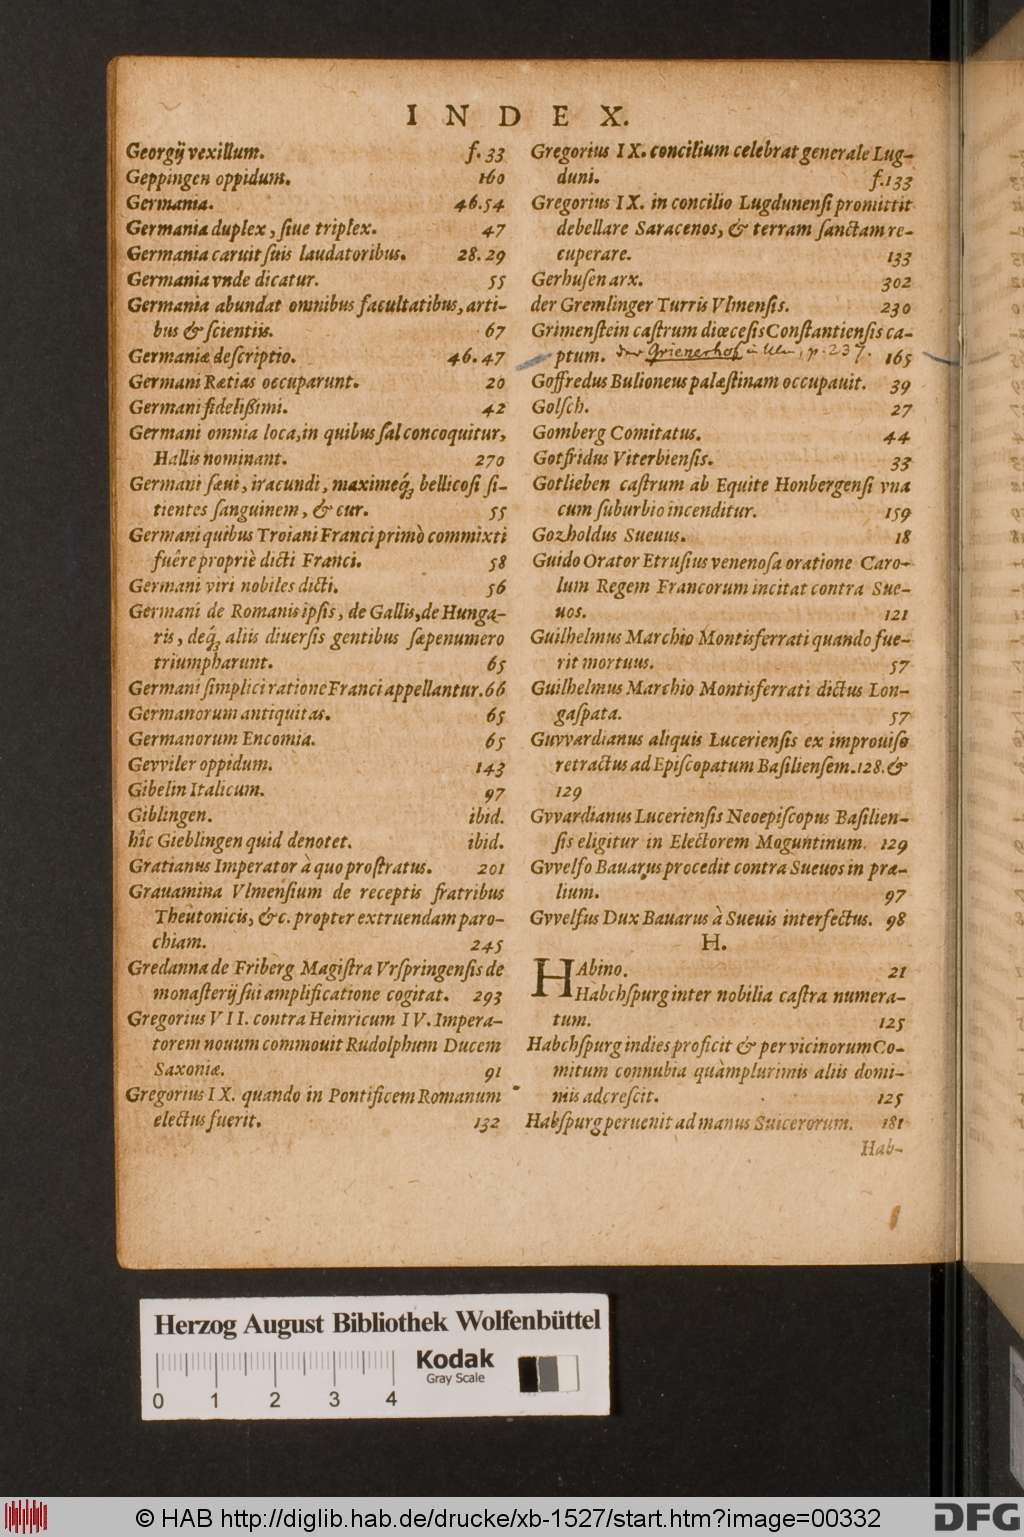 INDEX.
Georgij vexillum. f. 33
Geppingen oppidum. 160
Germania. 46.54
Germania duplex, ſiue triplex. 47
Germania caruit ſuis laudatoribus. 28. 29
Germania vnde dicatur. 55
Germania abundat omnibus facultatibus, arti-
bus & ſcientiis. 67
Germaniæ deſcriptio. 46. 47
Germani Rætias occuparunt. 20
Germani fideliſſimi. 42
Germani omnia loca, in quibus ſal concoquitur,
Hallis nominant. 270
Germani ſæui, iracundi, maximeq́; bellicoſi ſi-
tientes ſanguinem, & cur. 55
Germani quibus Troiani Franci primò commixti
fuêre propriè dicti Franci. 58
Germani viri nobiles dicti. 56
Germani de Romanis ipſis, de Gallis, de Hunga-
ris, deq́; aliis diuerſis gentibus ſæpenumero
triumpharunt. 65
Germani ſimplici ratione Franci appellantur. 66
Germanorum antiquitas. 65
Germanorum Encomia. 65
Gevviler oppidum. 143
Gibelin Italicum. 97
Giblingen. ibid.
hîc Gieblingen quid denotet. ibid.
Gratianus Imperator à quo proſtratus. 201
Grauamina Vlmenſium de receptis fratribus
Theutonicis, &c. propter extruendam paro-
chiam. 245
Gredanna de Friberg Magiſtra Vrſpringenſis de
monaſterij ſui amplificatione cogitat. 293
Gregorius VII. contra Heinricum IV. Impera-
torem nouum commouit Rudolphum Ducem
Saxoniæ. 91
Gregorius IX. quando in Pontificem Romanum
electus fuerit. 132
Gregorius IX. concilium celebrat generale Lug-
duni. f.133
Gregorius IX. in concilio Lugdunenſi promittit
debellare Saracenos, & terram ſanctam re-
cuperare. 133
Gerhuſen arx. 302
der Gremlinger Turris Vlmenſis. 230
Grimenſtein caſtrum diœceſis Conſtantienſis ca-
ptum. der Grienerhof in Ulm, p. 237. 165
Goffredus Bulioneus palæſtinam occupauit. 39
Golſch. 27
Gomberg Comitatus. 44
Gotfridus Viterbienſis. 33
Gotlieben caſtrum ab Equite Honbergenſi vna
cum ſuburbio incenditur. 159
Gozholdus Sueuus. 18
Guido Orator Etruſius venenoſa oratione Caro-
lum Regem Francorum incitat contra Sue-
uos. 121
Guilhelmus Marchio Montisferrati quando fue-
rit mortuus. 57
Guilhelmus Marchio Montisferrati dictus Lon-
gaſpata. 57
Guvvardianus aliquis Lucerienſis ex improuiſo
retractus ad Epiſcopatum Baſilienſem. 128. &
129
Gvvardianus Lucerienſis Neoepiſcopus Baſilien-
ſis eligitur in Electorem Moguntinum. 129
Gvvelfo Bauarus procedit contra Sueuos in præ-
lium. 97
Gvvelfus Dux Bauarus à Sueuis interfectus. 98
H.
HAbino. 21
Habchſpurg inter nobilia caſtra numera-
tum. 125
Habchſpurg indies proficit & per vicinorum Co-
mitum connubia quàmplurimis aliis domi-
niis adcreſcit. 125
Habſpurg peruenit ad manus Suicerorum. 181
Hab-
Herzog August Bibliothek Wolfenbüttel
Kodak
Gray Scale
0 1 2 3 4
© HAB http://diglib.hab.de/drucke/xb-1527/start.htm?image=00332
DFG